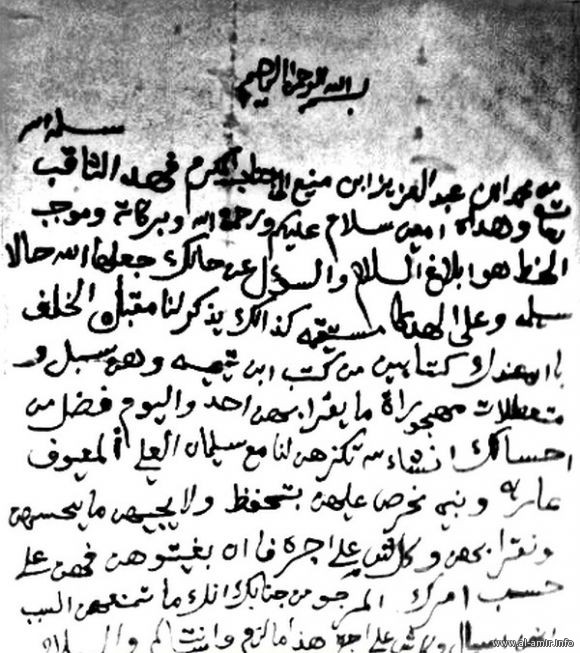 بسم الله الرحمن الرحيم
سلمه الله
من محمد ابن عبد العزيز ابن منيع الى جناب المكرم فهد الثاقب
تعالى وهداه امين سلام عليكم ورحمة الله وبركاته وموجب
الخط هو ابلاغ السلام والسؤال عن حالك جعلها الله حالا
سليمه وعلى الهدى مستقيمه كذالك يذكر لنا مقبل الخلف
بان عندك كتابين من كتب ابن تيميه وهن سبل و
متعطلات مهجوراة ما يقرا بهن احد واليوم فضل من
احسانك انشاء الله تكنزهن لنا مع سليمان العلي المعيوف
عاريه ونبي نحرص عليهن بتحفظ ولا يجيهن ما يحسهن
ونقرا بهن وكل شي على اجره فان بغيتوهن فهن على
حسب امرك المرجو من جنابك انك ما تمنعهن السبب
سبال على اجر هذا ما لزم وانت سالم والسلام
www.al-amir.info